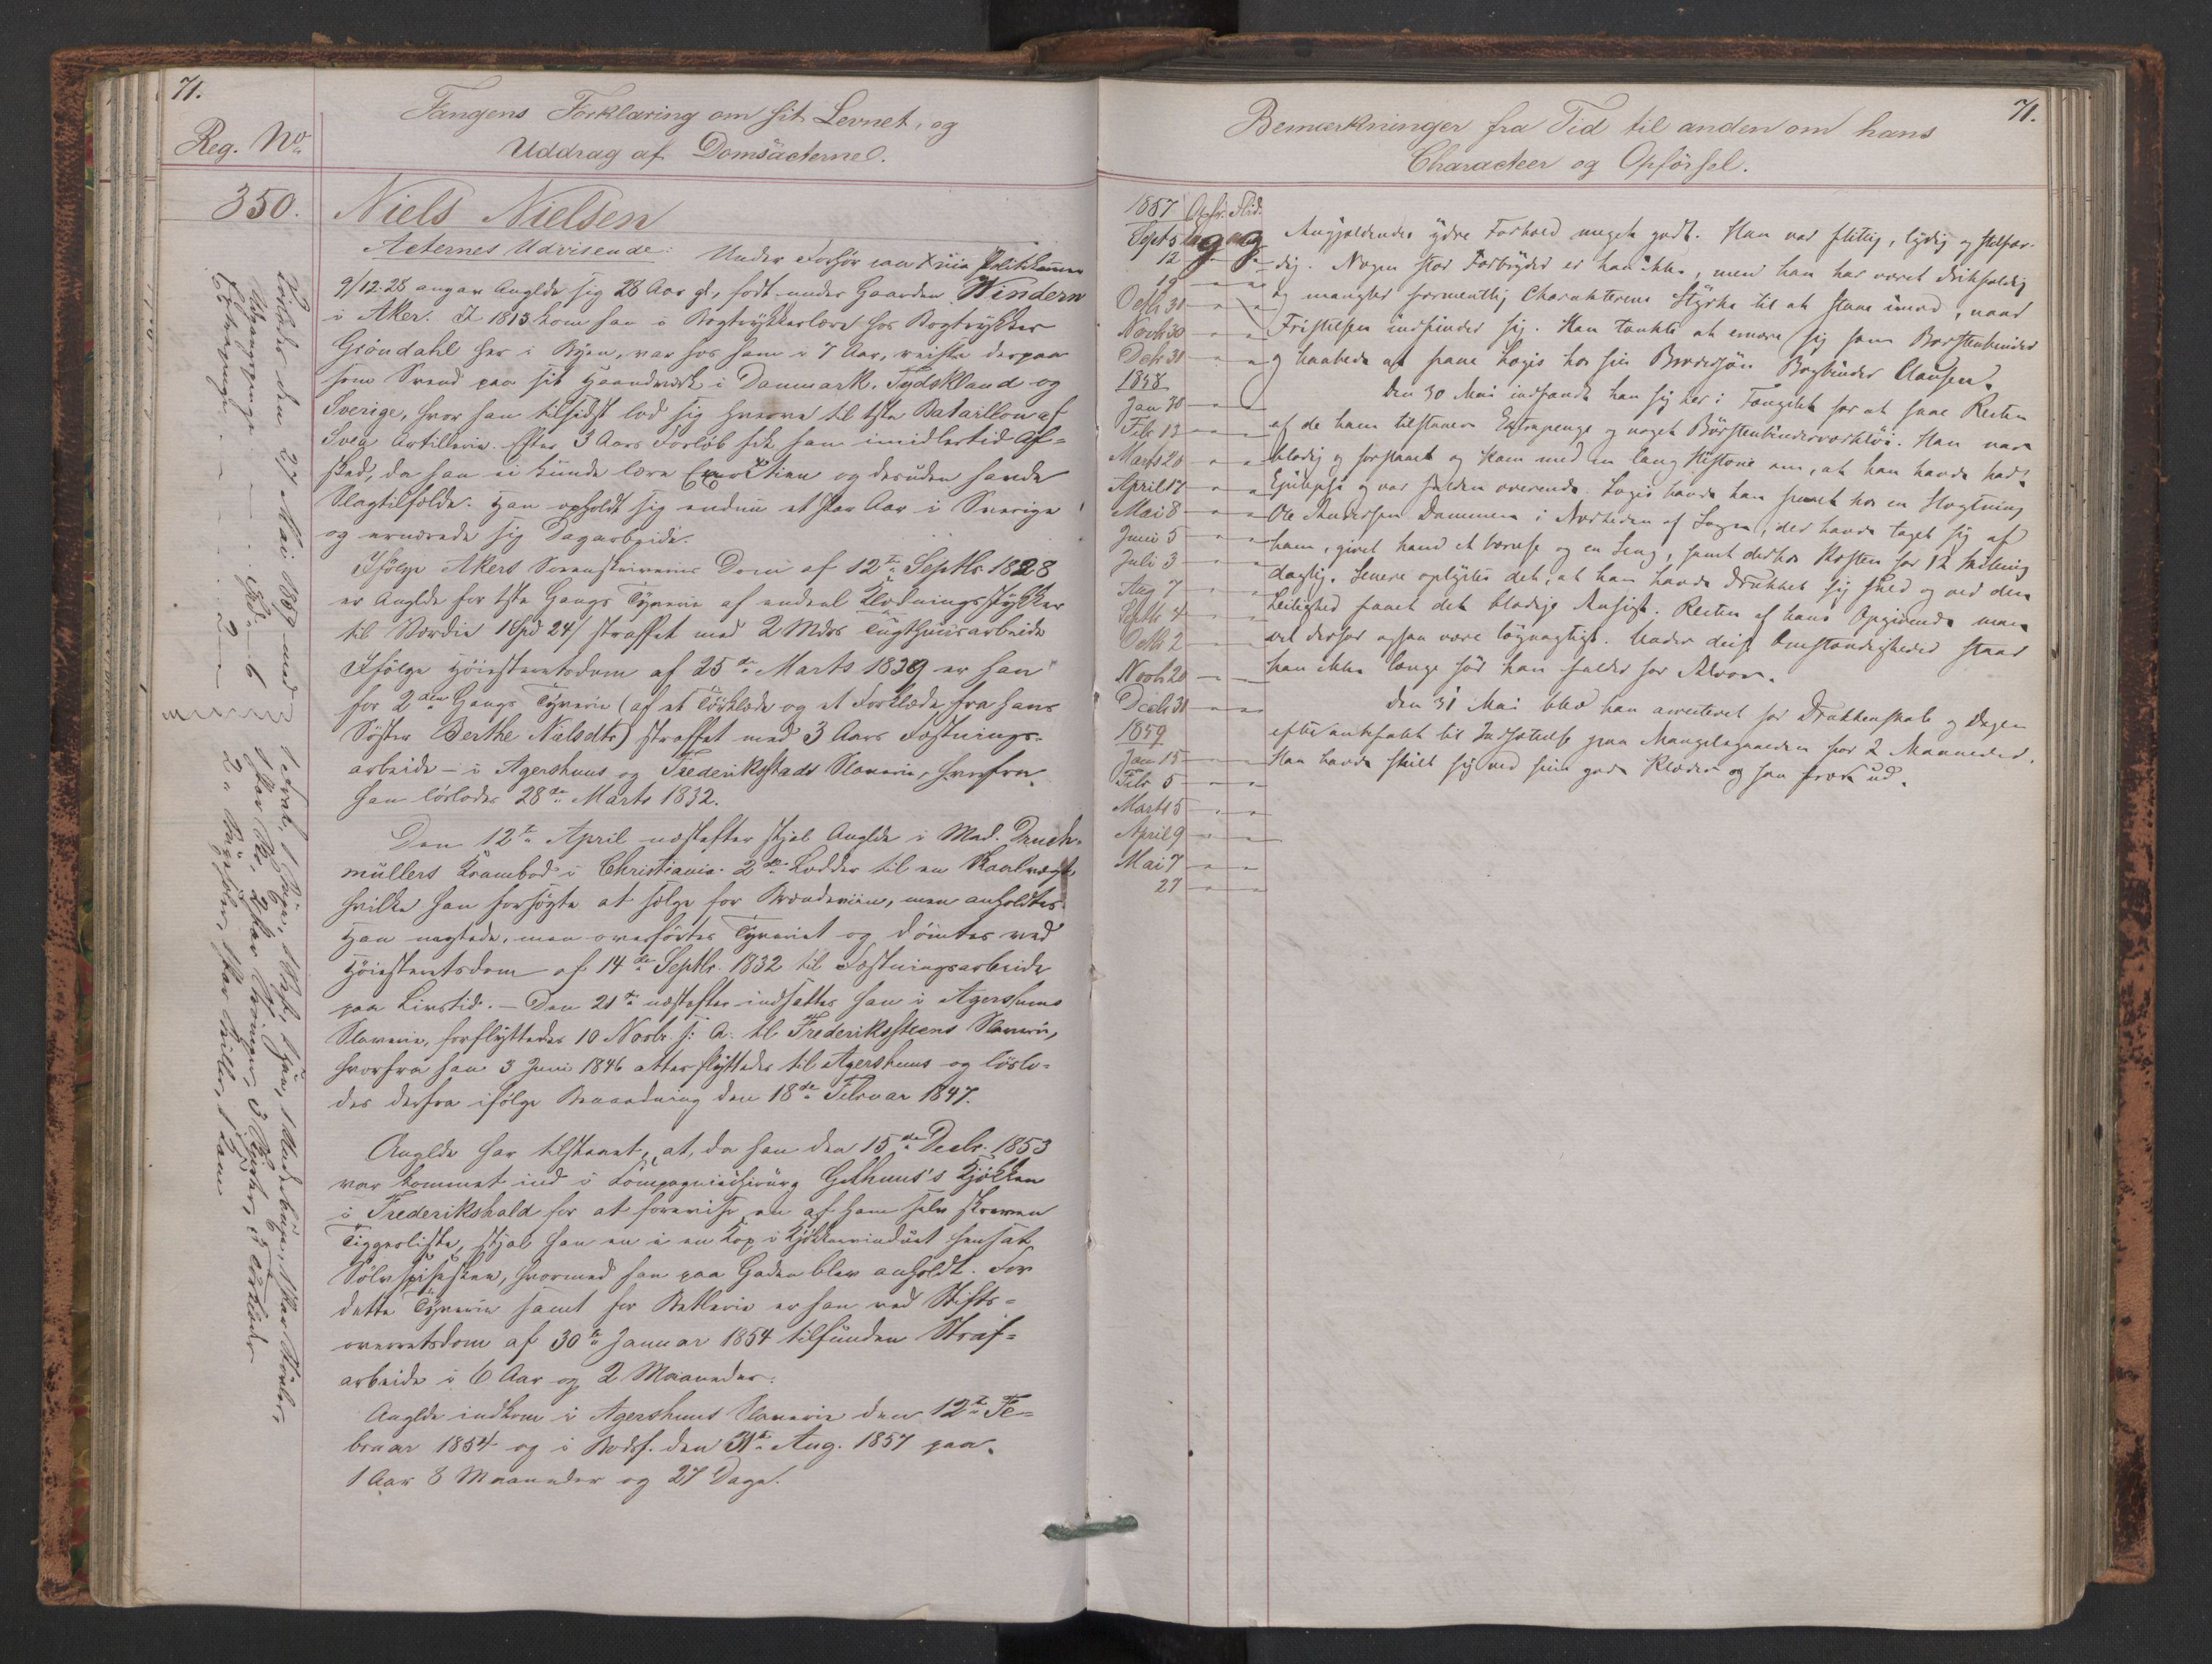 71.
Reg. No.
Fangens Forklaring om sit Levnet, og
Uddrag af Domsacterne.
350.
Niels Nielsen
Acternes Udvisende: Under Forhør ved Xnia Politikammer
9/12. 28 angav Anglde sig 28 Aar gl, født under Gaarden Windern
i Aker. I 1813 kom han i Bogtrykkerlære hos Bogtrykker
Gröndahl her i Byen, var hos ham i 7 Aar, reiste derpaa
som Svend paa sit Haandverk i Danmark, Tydskland og
Sverige, hvor han tilsidst lod sig hverve til 1ste Bataillon af
Svea Artilleri. Efter 3 Aars Forløb fik han imidlertid Af-
sked, da han ei kunde lære Exercitien og desuden havde
Slagtilfælde. Han opholdt sig endnu et Par Aar i Sverige
og ernærede sig Dagarbeide.
Ifølge Akers Sorenskriveries Dom af 12te Septbr 1828
er Anglde for 1ste Gangs Tyverie af endeel Klædningsstykker
til Værdie 1 Spd 24 s straffet med 2 Mdrs Tugthuusarbeide
Ifølge Høiesteretsdom af 25de Marts 1829 er han
for 2den Gangs Tyverie (af et Tørklæde og et Forklæde fra hans
Søster Berthe Nielsdtr) straffet med 3 Aars Fæstnings-
arbeide – i Agershuus og Frederiksstads Slaverie, hvorfra
han løslodes 28de Marts 1832.
Den 12te April næstefter stjal Anglde i Mad. Druch-
müllers Krambod i Christiania 2de Lodder til en Skaalvægt,
hvilke han forsøgte at sælge for Brændeviin, men anholdtes.
Han negtede, men overførtes Tyveriet og dømtes ved
Høiesteretsdom af 14de Septbr. 1832 til Fæstningsarbeide
paa Livstid. – Den 21de næstefter indsattes han i Agershuus
Slaverie, forflyttedes 10 Novbr. s: A. til Frederikssteens Slaverie,
hvorfra han 3 Juni 1846 atter flyttedes til Agershuus og løslo-
des derfra ifølge Benaadning den 18de Februar 1847.
Anglde har tilstaaet, at, da han den 15de Decbr. 1853
var kommet ind i Compagniechirurg Gethuus's Kjøkken
i Frederikshald for at forevise en af ham selv skreven
Tiggerliste, stjal han en i en Kop i Kjøkkenvinduet hensat
Sølvspiseskee, hvormed han paa Gaden blev anholdt. For
dette Tyverie samt for Betlerie er han ved Stifts-
overretsdom af 30te Januar 1854 tilfunden Straf-
arbeide i 6 Aar og 2 Maaneder.
Anglde indkom i Agershuus Slaverie den 12te Fe-
bruar 1854 og i Bodsf. den 31te Aug. 1857 paa
1 Aar 8 Maaneder og 27 Dage.
Løslodes den 27 Mai 1859 med
1 Frak, 1 Trøie, 1 Vest, 1 Huer, 1 Par Støvler,
1 Par Sko, 2 Par Strømper, 3 Skjorter, 3 Tørklæder
71.
Bemærkninger fra Tid til anden om hans
Characteer og Opførsel.
1857 Opf. Flid.
Sept 5 mg mg
12 – –
19 – –
Octb 31 – –
Novb 30 – –
Decb 31 – –
1858
Jan 30 – –
Feb 13 – –
Marts 20 – –
April 17 – –
Mai 8 – –
Juni 5 – –
Juli 3 – –
Aug 7 – –
Septb 4 – –
Octb 2 – –
Novb 20 – –
Decb 31 – –
1859
Jan 15 – –
Febr 5 – –
Marts 5 – –
April 9 – –
Mai 7 – –
27 – –
Angjældendes ydre Forhold meget godt. Han var flittig, lydig og stilfær-
dig. Nogen stor Forbryder er han ikke, men han har været drikfældig
og mangler formentlig Charakterens Styrke til at staae imod, naar
Fristelsen indfinder sig. Han tænkte at ernære sig som Børstenbinder
og haabede at faae Logis hos sin Brodersøn Bogbinder Clausen.
Den 30 Mai indfandt han sig her i Fængslet for at faae Resten
af de ham tilstaaede Extrapenge og noget Børstenbinderværktøi. Han var
blodig og forslaaet og kom med en lang Historie om, at han havde havt
Epilepsi og var falden overende. Logis havde han faaet hos en Slægtning
Ole Andersen Dammen i Nærheden af Byen, der havde taget sig af
ham, givet ham et Værelse og en Seng, samt derhos Kosten for 12 Skilling
daglig. Senere oplystes det, at han havde drukket sig fuld og ved den
Leilighed faaet det blodige Ansigt. Resten af hans Opgivende maa
vel derfor ogsaa være løgnagtigt. Under disse Omstændigheder staaer
han ikke længe før han falder for Alvor.
Den 31 Mai blev han arresteret for Drukkenskab og Dagen
efter antsat til Indsættelse paa Mangelsgaarden for 2 Maaneder.
Han havde skilt sig ved sine gode Klæder og saa fræk ud.